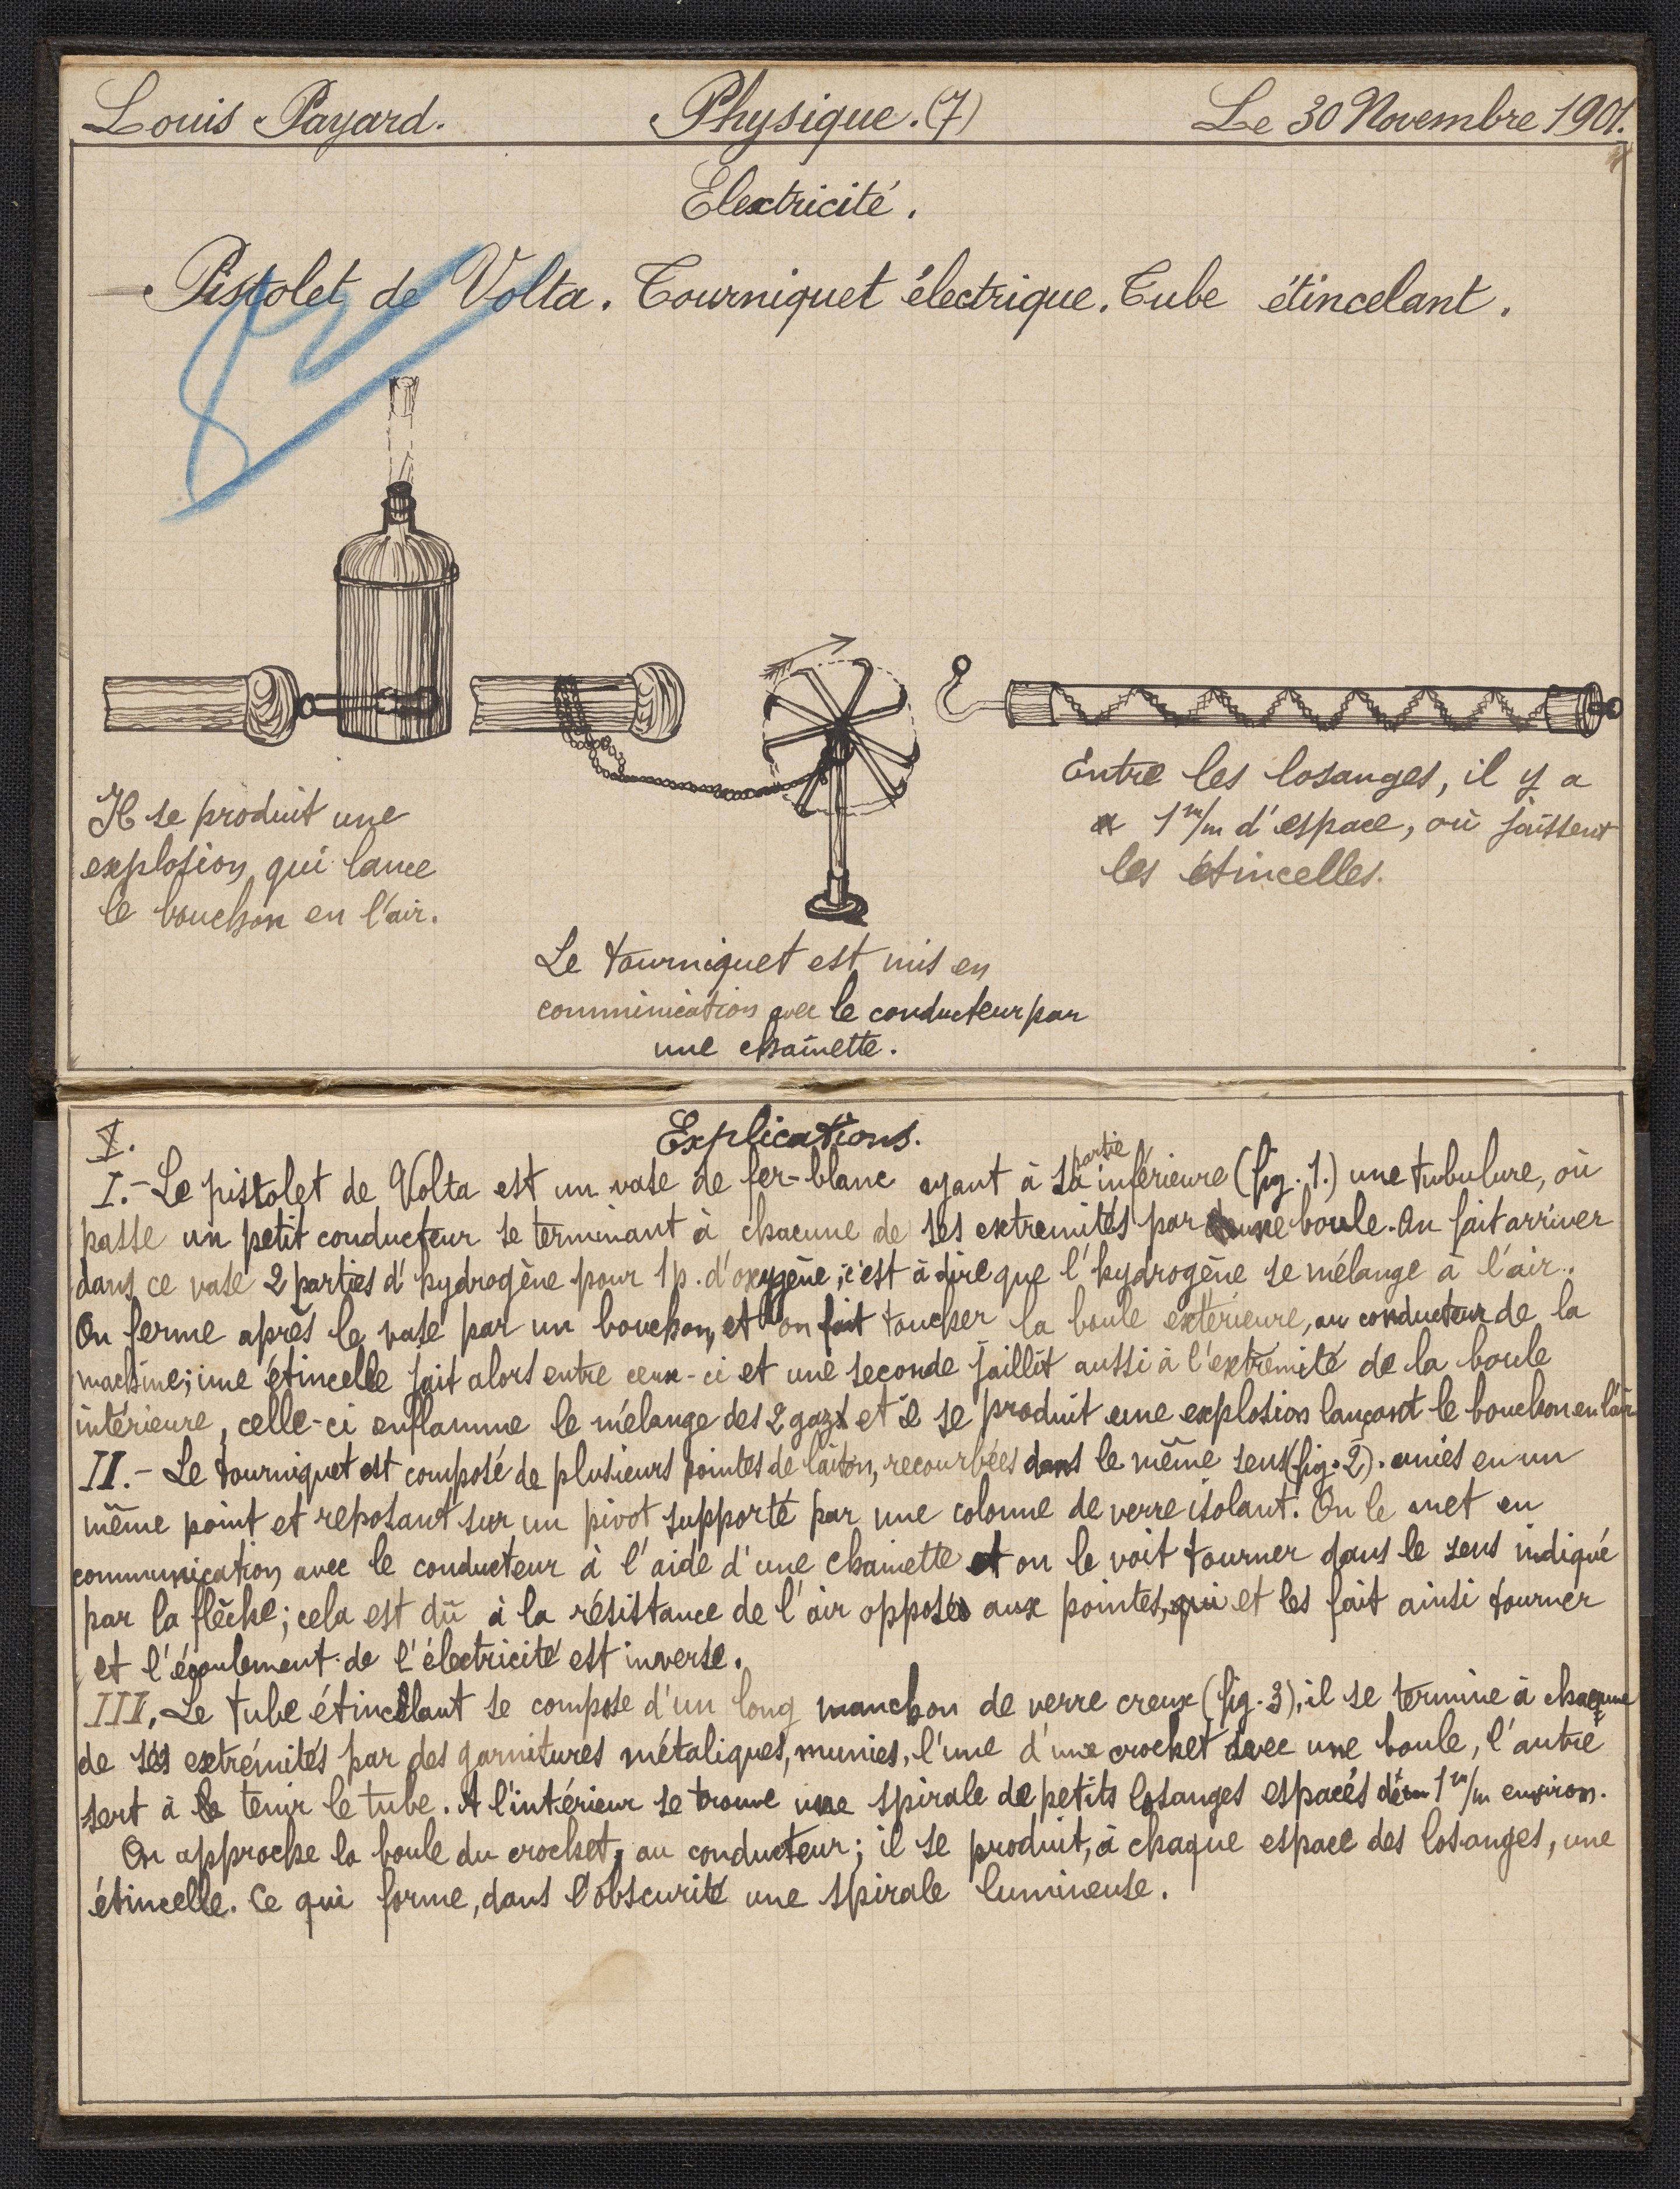 Louis Payard. Physique. (7) Le 30 Novembre 1901.
Electricité.
Pistolet de Volta. Tourniquet électrique. Tube étincelant.
Il se produit une
explosion qui lance
le bouchon en l'air.
Entre les losanges, il y a
1 m/m d'espace, où jaissent
les étincelles.
Le tourniquet est mis en
comminication avec le conducteur par
une chaînette.
Explications.
I.- Le pistolet de Volta est un vase de fer-blanc ayant à sa partie inférieure (fig. 1.) une tubulure, où
passe un petit conducteur se terminant à chacune de ses extremités par une boule. On fait arriver
dans ce vase 2 parties d'hydrogène pour 1 p. d'oxygène; c'est à dire que l'hydrogène se mélange à l'air.
On ferme après le vase par un bouchon, et l'on fait toucher la boule extérieure, au conducteur de la
machine; une étincelle jait alors entre ceux-ci et une seconde jaillit aussi à l'extrémité de la boule
intérieure, celle-ci enflamme le mélange des 2 gaz et il se produit une explosion lançant le bouchon en l'air
II.- Le tourniquet est composé de plusieurs pointes de laiton, recourbées dans le même sens (fig. 2). unies en un
même point et reposant sur un pivot supporté par une colonne de verre isolant. On le met en
communication avec le conducteur à l'aide d'une chainette et on le voit tourner dans le sens indiqué
par la flèche; cela est dû à la résistance de l'air opposés aux pointes, qui et les fait ainsi tourner
et l'écoulement de l'électricité est inverse.
III. Le tube étincelant se compose d'un long manchon de verre creux (fig. 3), il se termine à chacune
de ses extrémités par des garnitures métaliques, munies, l'une d'une crochet avec une boule, l'autre
sert à tenir le tube. A l'intérieur se trouve une spirale de petits losanges espacés de 1 m/m environ.
On approche la boule du crochet, au conducteur; il se produit, à chaque espace des losanges, une
étincelle. Ce qui forme, dans l'obscurité une spirale lumineuse.